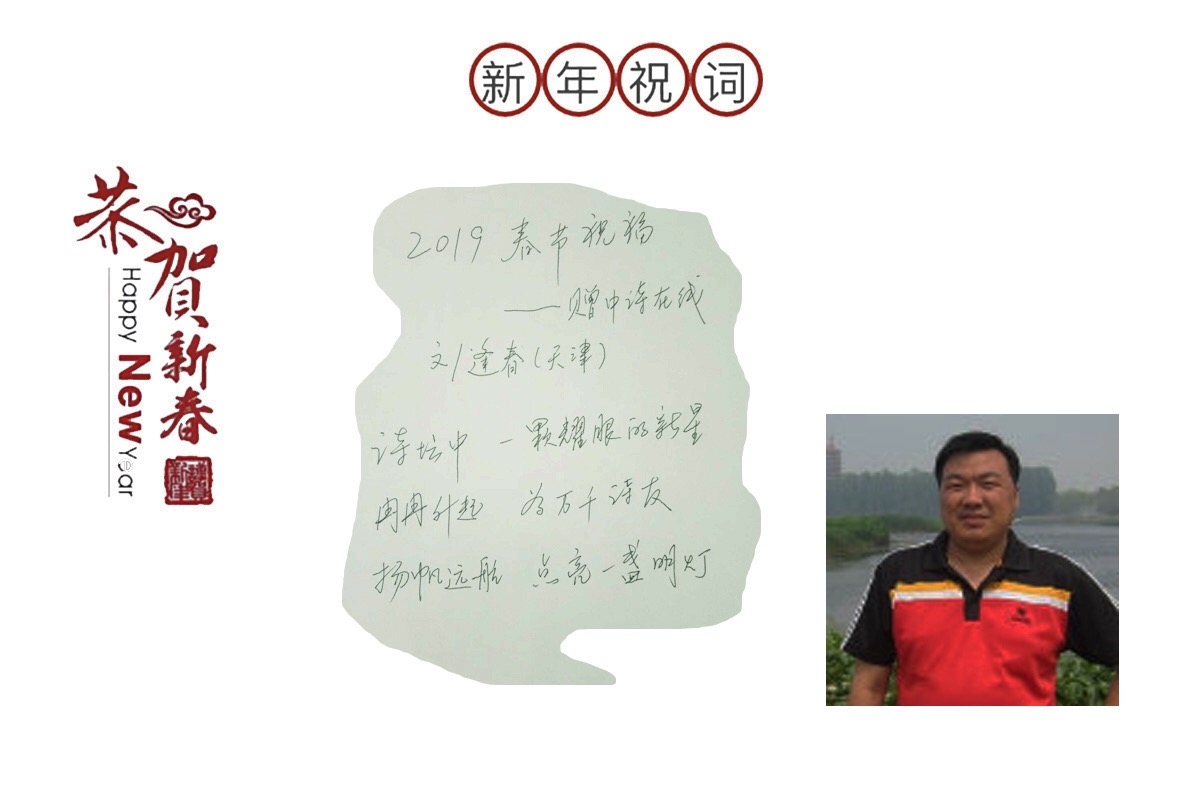 新年祝词
恭贺新春
Happy New Year
2019 春节祝福
——赠中诗在线
刘逢春(天津)
诗坛中 一颗耀眼的新星
冉冉升起 为万千诗友
扬帆远航 点亮一盏明灯